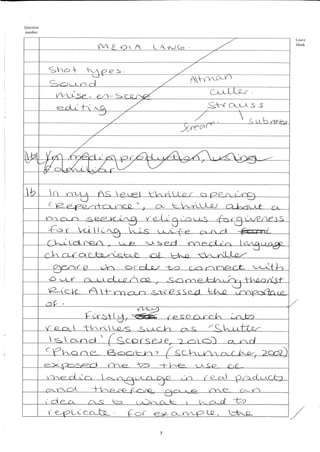 Question
number
Leave
blank
MEDIA LANG.
Shot types.
Sound
Mise-en-Scene
editing
Altman
Culler
Strauss
Scream
1b In media production, using
familiar
1b In my AS level thriller opening
'Repentance', a thriller about a
man seeking religious forgiveness
for killing his wife and
Children, we used media language
characteristic of the thriller
genre in order to connect with
our audience, something theorist
Rick Altman stressed the importance
of.
Firstly, my research into
real thrillers such as "Shutter
Island" (Scorsese, 2010) and
"Phone Booth" (Schumacher, 2002)
exposed me to the use of
media language in real products
and therefore gave me an
idea as to what I had to
replicate. For example, the
7